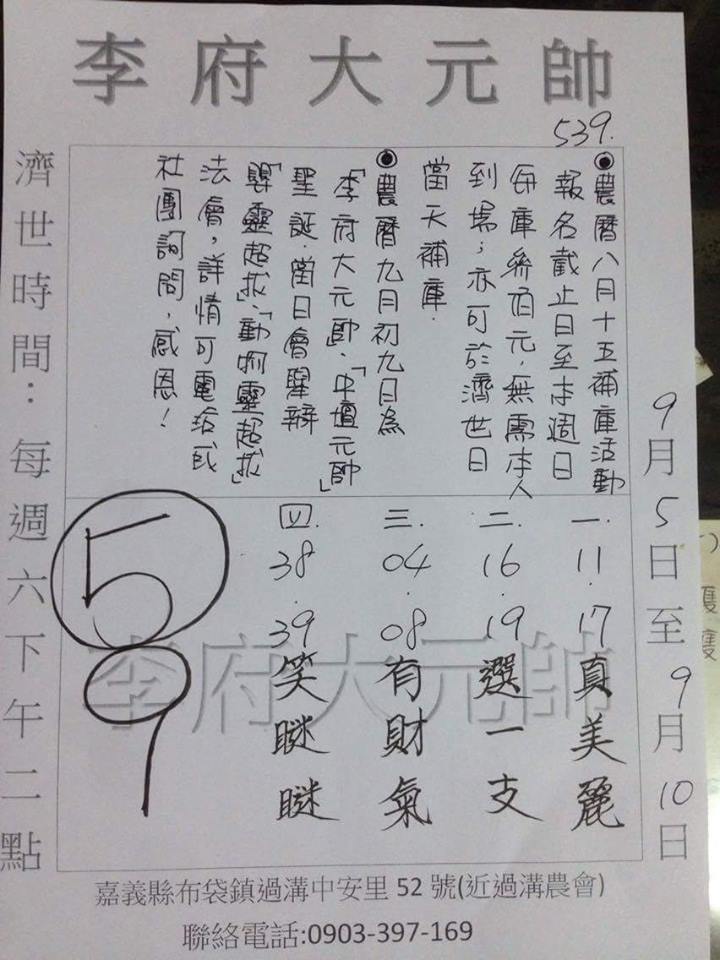 李府大元帥
539.
9月5日至9月10日
⦿農曆八月十五補庫活動
報名截止日至本週日
每庫叁佰元,無需本人
到場;亦可於濟世日
當天補庫.
⦿農曆九月初九日為
「李府大元帥」、「中壇元帥」
聖誕.當日會舉辦
「嬰靈超拔」、「動物靈超拔」
法會,詳情可電洽或
社團詢問,感恩!
一.11.17真美麗
二.16.19選一支
三.04.08有財氣
四.38.39笑瞇瞇
5
9
李府大元帥
濟世時間:每週六下午二點
嘉義縣布袋鎮過溝中安里 52 號(近過溝農會)
聯絡電話:0903-397-169